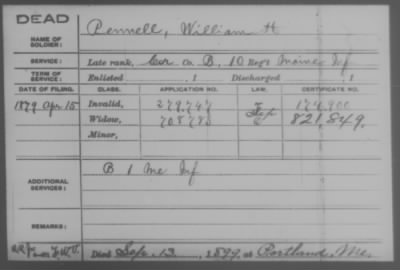 DEAD
NAME OF SOLDIER: Pennell, William H
SERVICE: Late rank, Cor Co. B, 10 Reg't Maine Inf
TERM OF SERVICE: Enlisted , 1 Discharged , 1
DATE OF FILING. CLASS. APPLICATION NO. LAW. CERTIFICATE NO.
1879 Apr 15 Invalid, 279,747 174,900
Widow, 708,783 821,849.
Minor,
ADDITIONAL SERVICES: B 1 Me Inf
REMARKS:
Died Sep. 13, 1899, at Portland, Me.